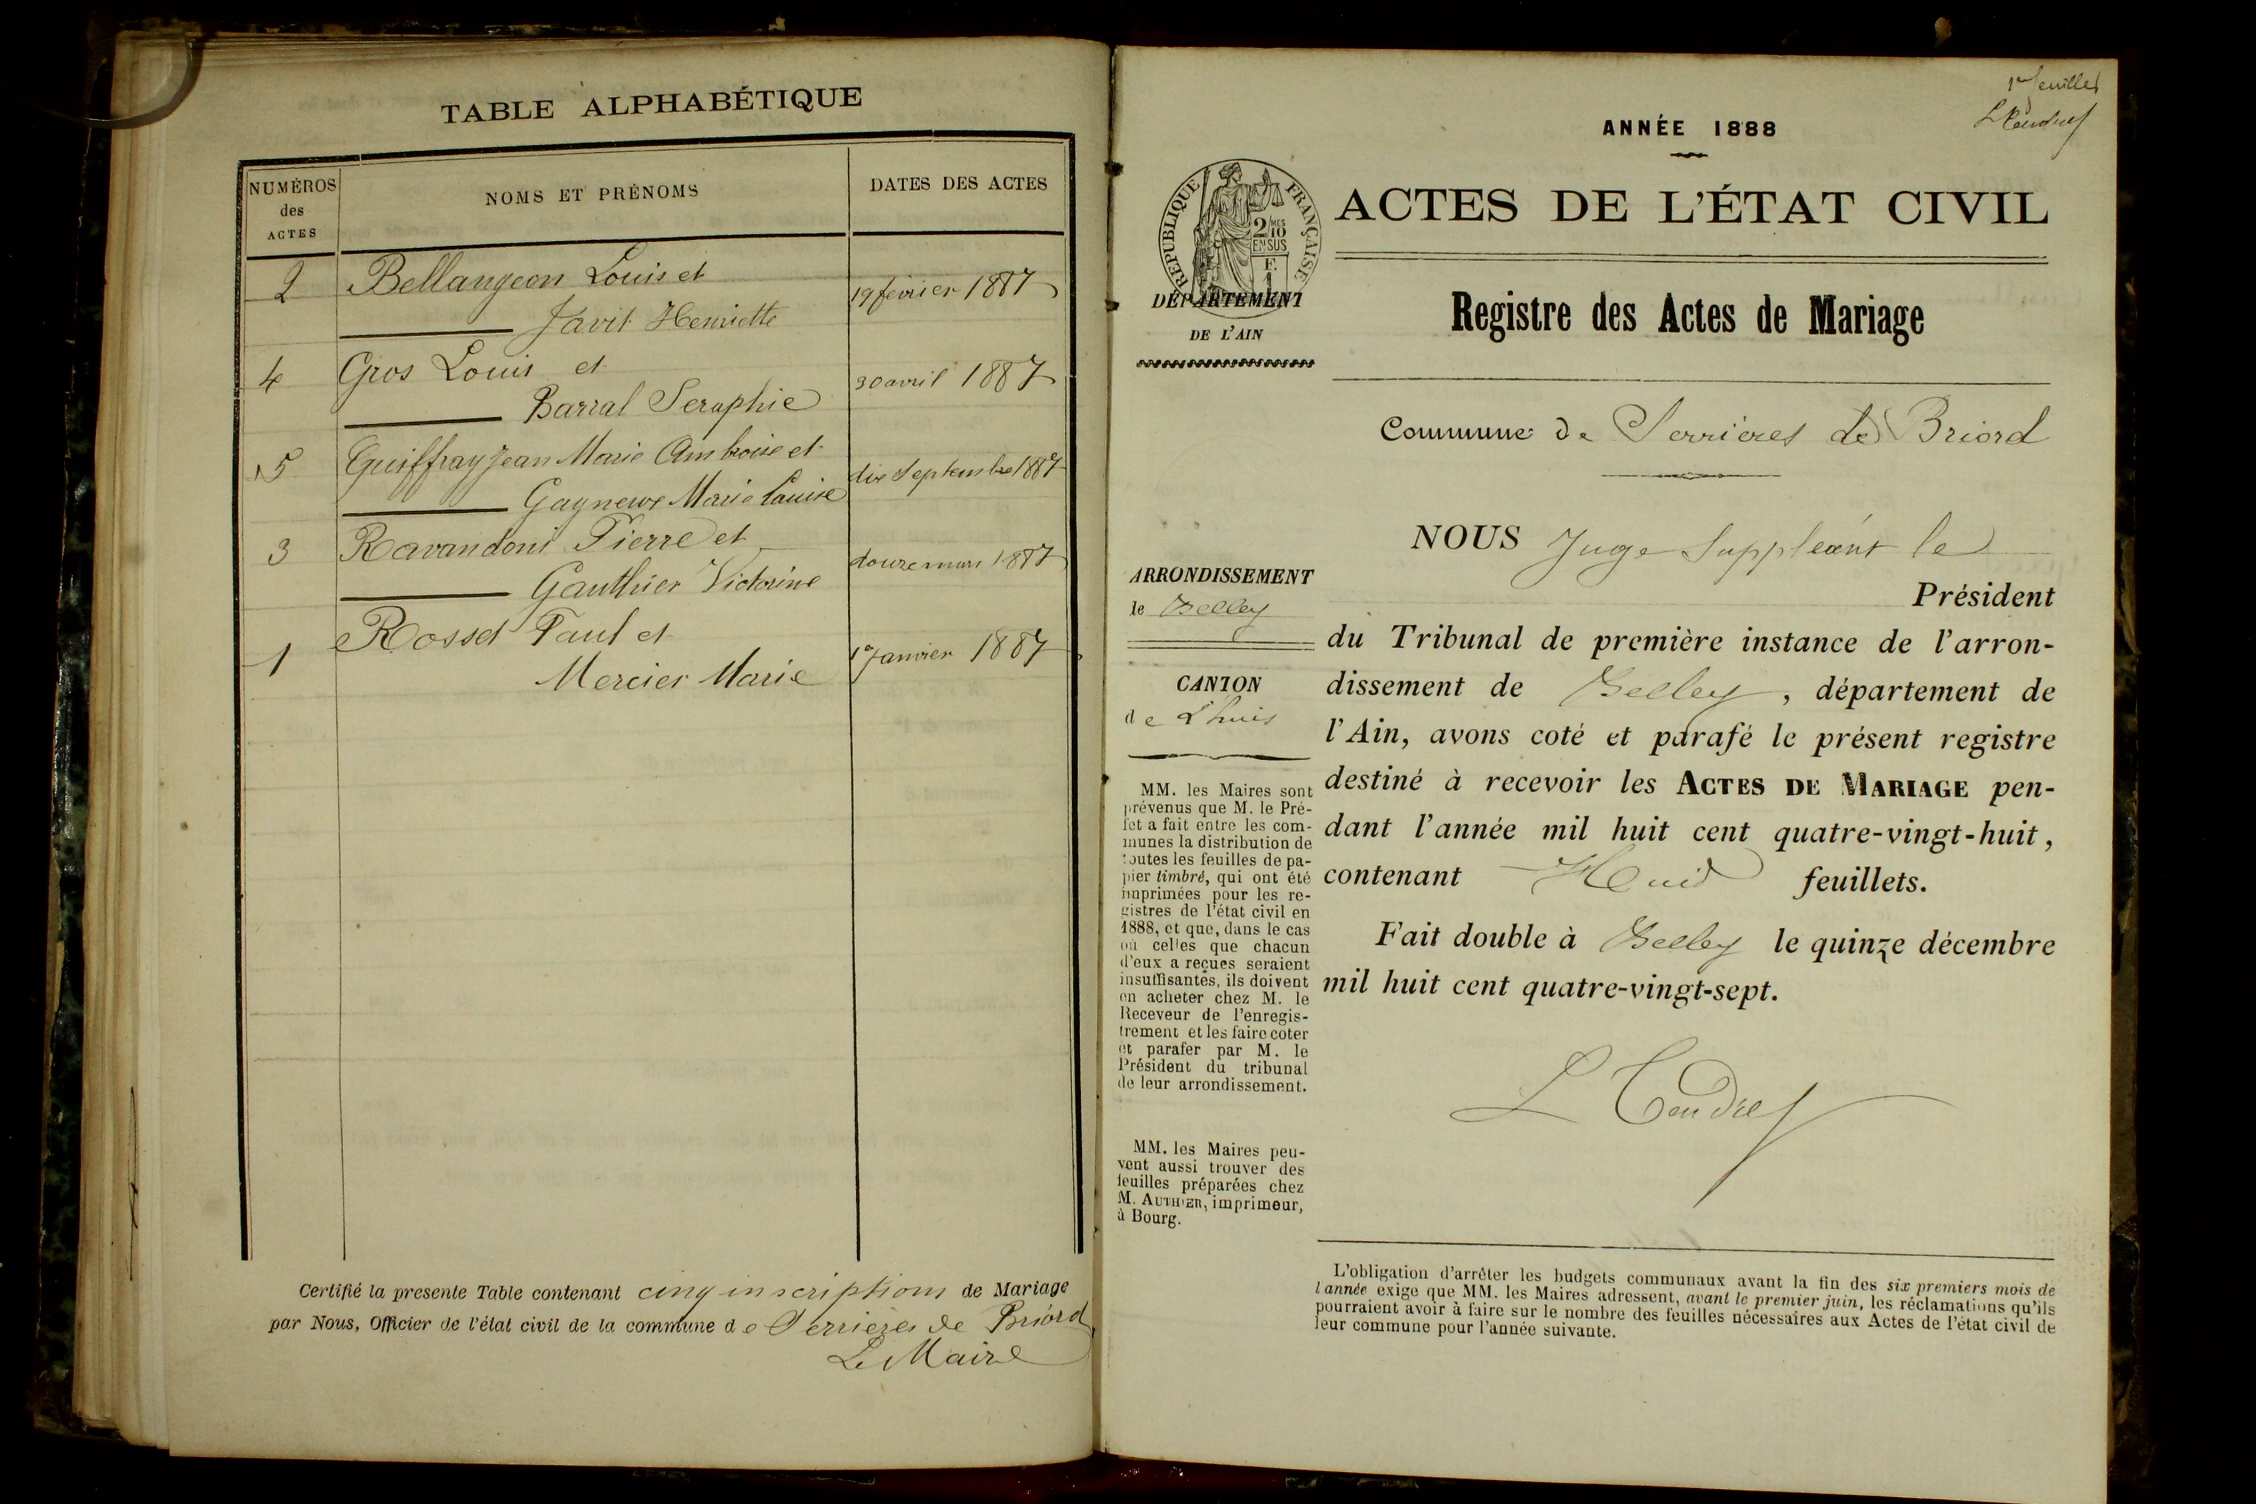 TABLE ALPHABÉTIQUE
NUMÉROS
des
ACTES
NOMS ET PRÉNOMS
DATES DES ACTES
2 Bellangeon Louis et
Javit Henriette
19 fevrier 1887
4 Gros Louis et
Barral Seraphie
30 avril 1887
5 Guiffray Jean Marie Ambroise et
Gagneux Marie Louise
dix Septembre 1887
3 Ravandoni Pierre et
Gauthier Victorine
douze mars 1887
1 Rosset Paul et
Mercier Marie
1er Janvier 1887
Certifié la presente Table contenant cinq inscriptions de Mariage
par Nous, Officier de l'état civil de la commune de Serrières de Briord
Le Maire
1er feuillet
ANNÉE 1888
RÉPUBLIQUE FRANÇAISE
2/10
EN SUS
ACTES DE L'ÉTAT CIVIL
DÉPARTEMENT
DE L'AIN
Registre des Actes de Mariage
Commune de Serrieres de Briord
NOUS Juge Suppleant le
Président
ARRONDISSEMENT
de Belley
du Tribunal de première instance de l'arron-
dissement de Belley, département de
l'Ain, avons coté et parafé le présent registre
destiné à recevoir les ACTES DE MARIAGE pen-
dant l'année mil huit cent quatre-vingt-huit,
contenant Huit feuillets.
Fait double à Belley le quinze décembre
mil huit cent quatre-vingt-sept.
CANTON
de Lhuis
MM. les Maires sont
prévenus que M. le Pré-
fet a fait entre les com-
munes la distribution de
toutes les feuilles de pa-
pier timbré, qui ont été
imprimées pour les re-
gistres de l'état civil en
1888, et que, dans le cas
où celles que chacun
d'eux a reçues seraient
insuffisantes, ils doivent
en acheter chez M. le
Receveur de l'enregis-
trement et les faire coter
et parafer par M. le
Président du tribunal
de leur arrondissement.
MM. les Maires peu-
vent aussi trouver des
feuilles préparées chez
M. AUTHIER, imprimeur,
à Bourg.
L'obligation d'arrêter les budgets communaux avant la fin des six premiers mois de
l'année exige que MM. les Maires adressent, avant le premier juin, les réclamations qu'ils
pourraient avoir à faire sur le nombre des feuilles nécessaires aux Actes de l'état civil de
leur commune pour l'année suivante.